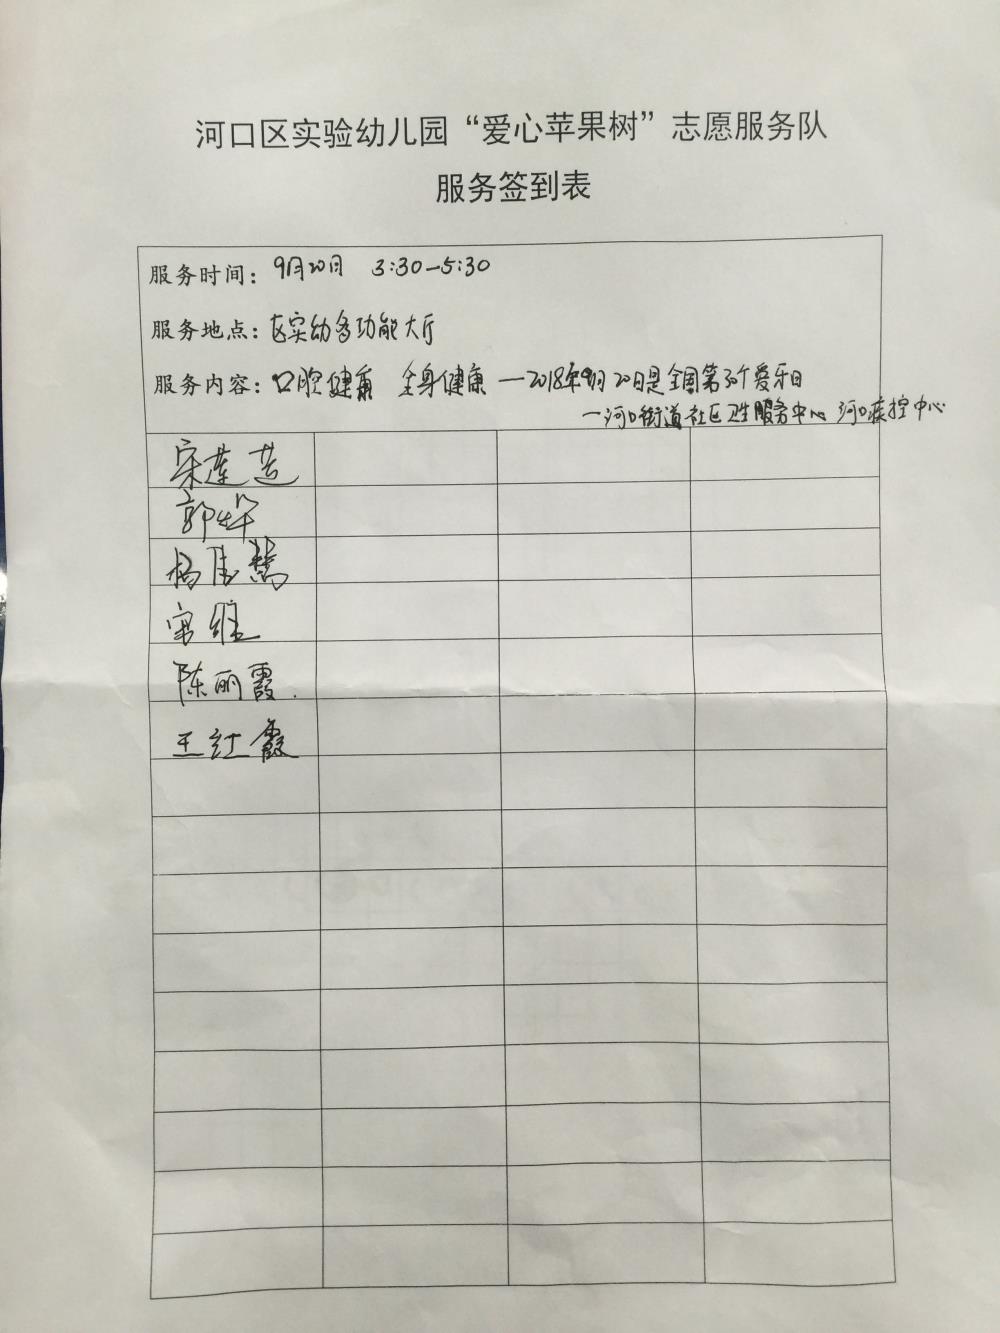 河口区实验幼儿园“爱心苹果树”志愿服务队
服务签到表
服务时间：9月20日 3:30—5:30
服务地点：区实幼多功能大厅
服务内容：口腔健康 全身健康 —2018年9月20日是全国第30个爱牙日
—河口街道社区卫生服务中心 河口疾控中心
宋莲芸
郭烨
杨佳慧
陈丽霞
王红霞